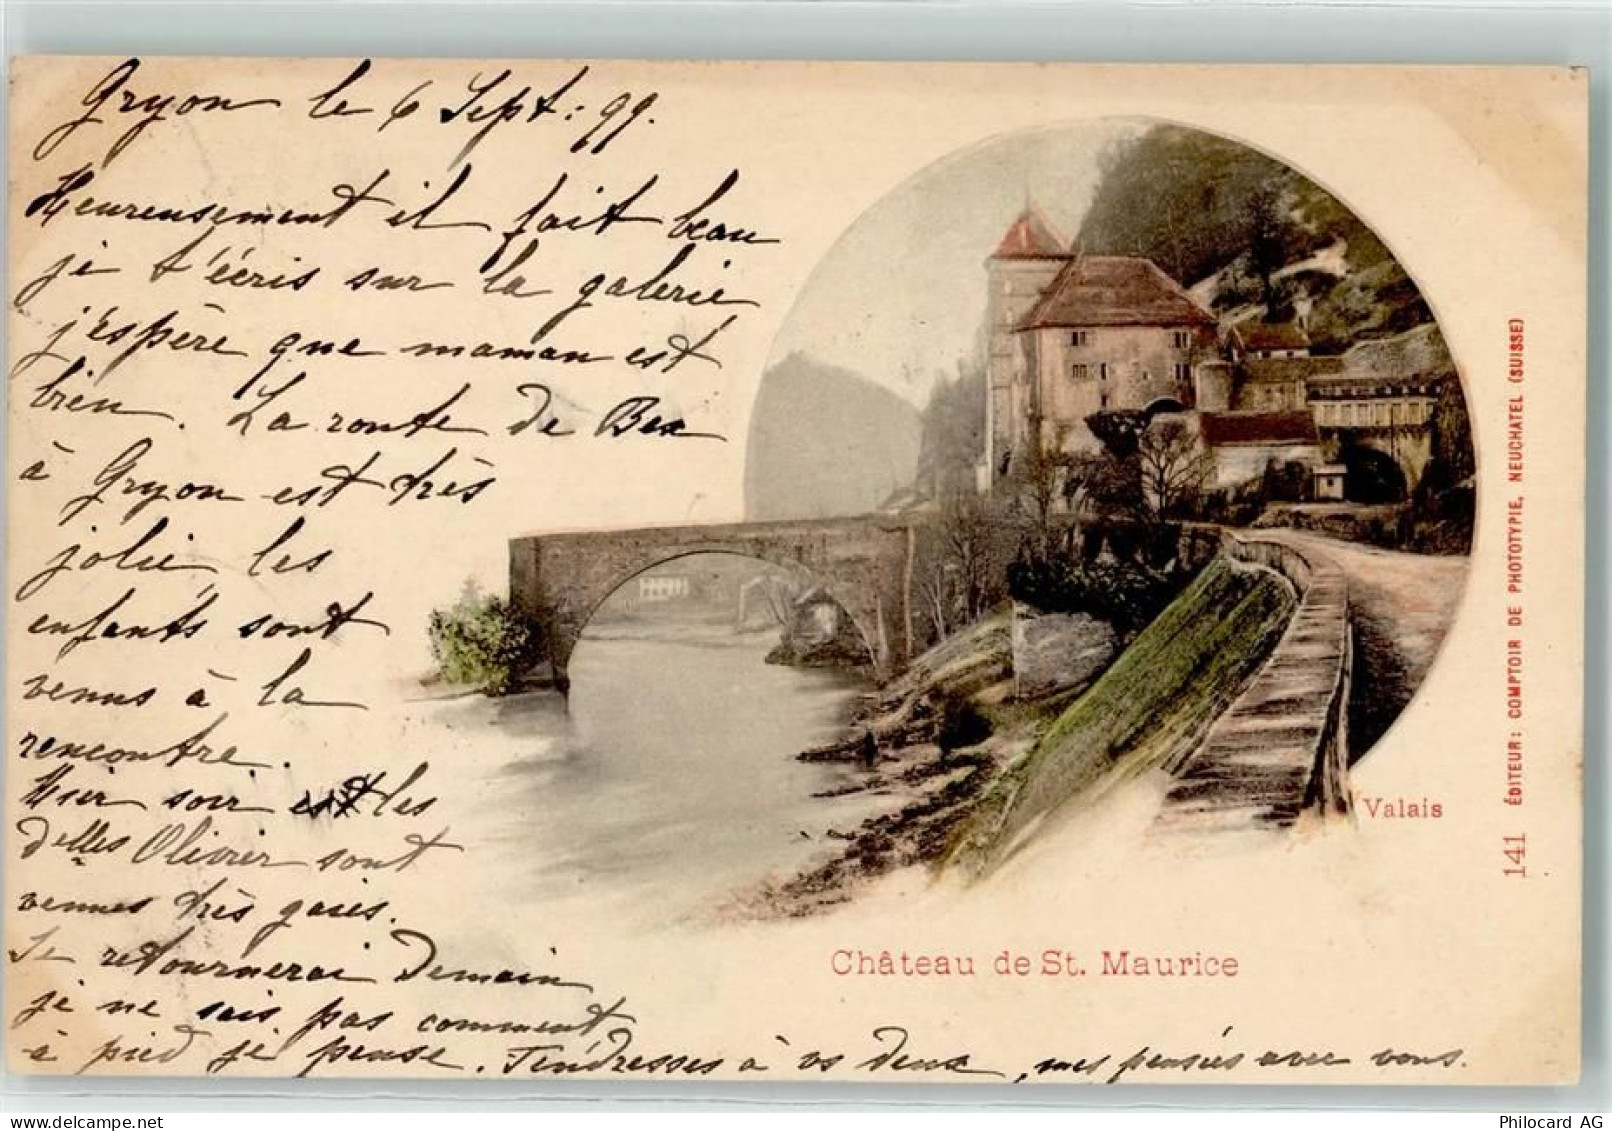 Gryon le 6 Sept: 99.
Heureusement il fait beau
je t'écris sur la galerie
j'espère que maman est
bien. La route de Bex
à Gryon est très
jolie les
enfants sont
venus à la
rencontre.
Hier soir les
delles Olivier sont
venues très gaies.
Je retournerai Demain
je ne sais pas comment
à pied je pense. Tendresses à vs deux, mes pensées avec vous.
Valais
Château de St. Maurice
141 ÉDITEUR: COMPTOIR DE PHOTOTYPIE, NEUCHATEL (SUISSE)
Philocard AG